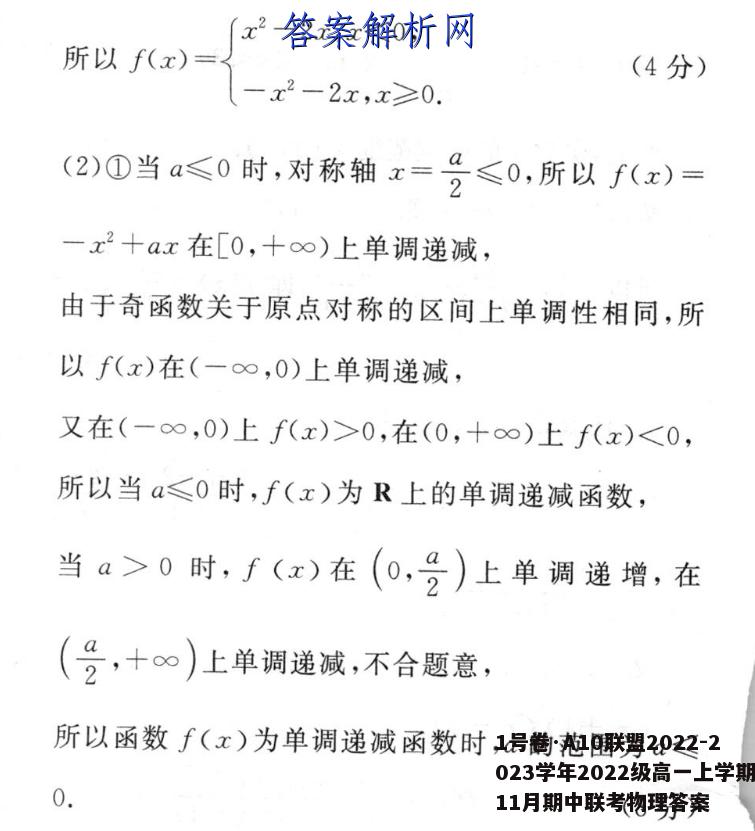 答案解析网
所以 f(x)={x²-2x,x<0,
-x²-2x,x≥0.
(4 分)
(2)①当 a≤0 时,对称轴 x=a/2≤0,所以 f(x)=
-x²+ax 在[0,+∞)上单调递减,
由于奇函数关于原点对称的区间上单调性相同,所
以 f(x)在(-∞,0)上单调递减,
又在(-∞,0)上 f(x)>0,在(0,+∞)上 f(x)<0,
所以当 a≤0 时,f(x)为 R 上的单调递减函数,
当 a>0 时,f(x)在(0,a/2)上单调递增,在
(a/2,+∞)上单调递减,不合题意,
所以函数 f(x)为单调递减函数时,a 的范围为 a≤
0.
1号卷·A10联盟2022-2
023学年2022级高一上学期
11月期中联考物理答案